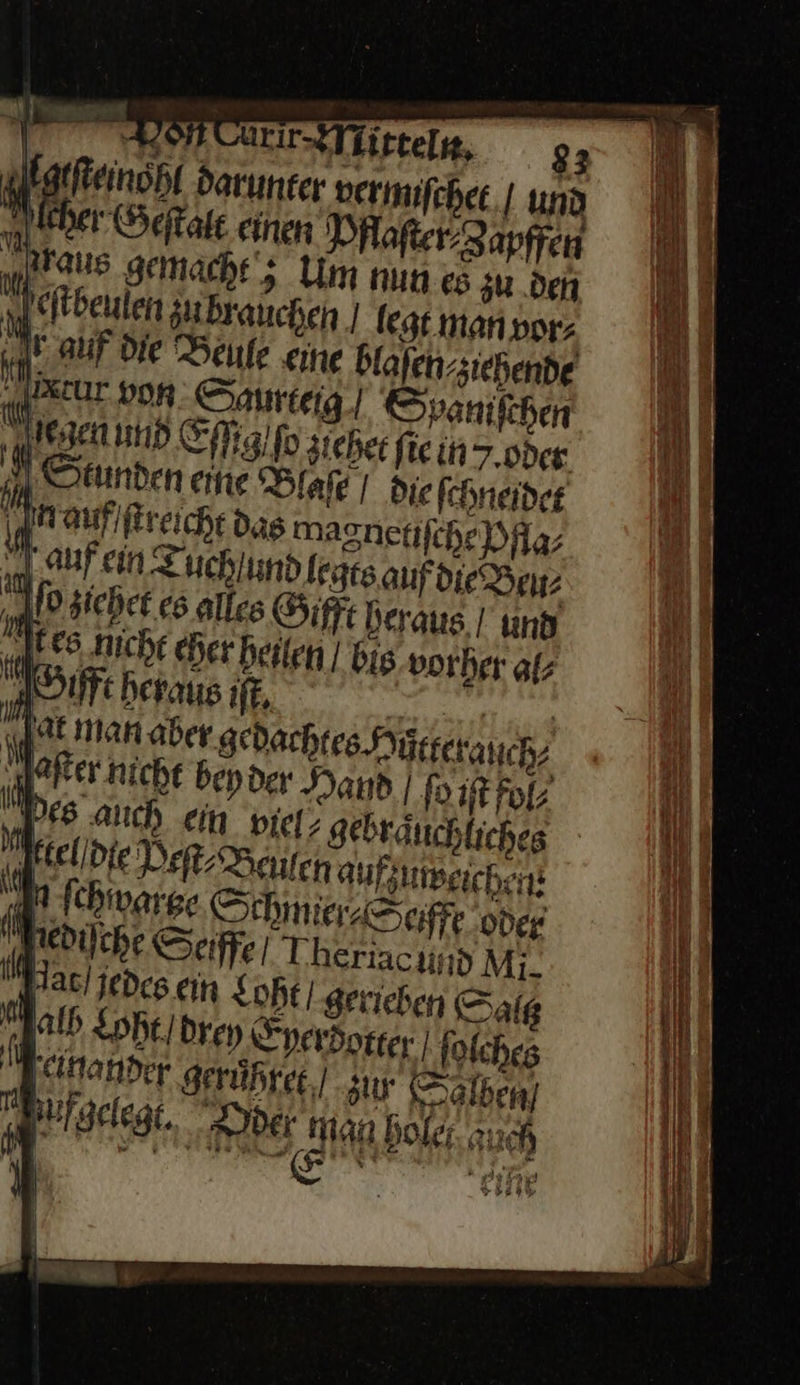 Von Curir-Mitteln. 83
darunter vermischet / und
Gestalt einen Pflaster-Zapffen
gemacht; Um nun es zu den
zu brauchen / legt man vor-
auf die Beule eine blasen-ziehende
von Saurteig / Spanischen
und Essig / so ziehet sie in 7. oder
Stunden eine Blase / die schneidet
auf / streicht das magnetische Pfla-
auf ein Tuch / und legts auf die Beu-
so ziehet es alles Gifft heraus / und
es nicht eher heilen / bis vorher al-
Gifft heraus ist.
man aber gedachtes Hütterauch-
nicht bey der Hand / so ist fol-
auch ein viel-gebräuchliches
die Pest-Beulen aufzuweichen:
schwartze Schmier-Seiffe oder
Seiffe / Theriac und Mi-
jedes ein Loht / gerieben Saltz
Loht / drey Eyerdotter / solches
gerühret / zur Salben /
aufgelegt. Oder man holet auch
E eine